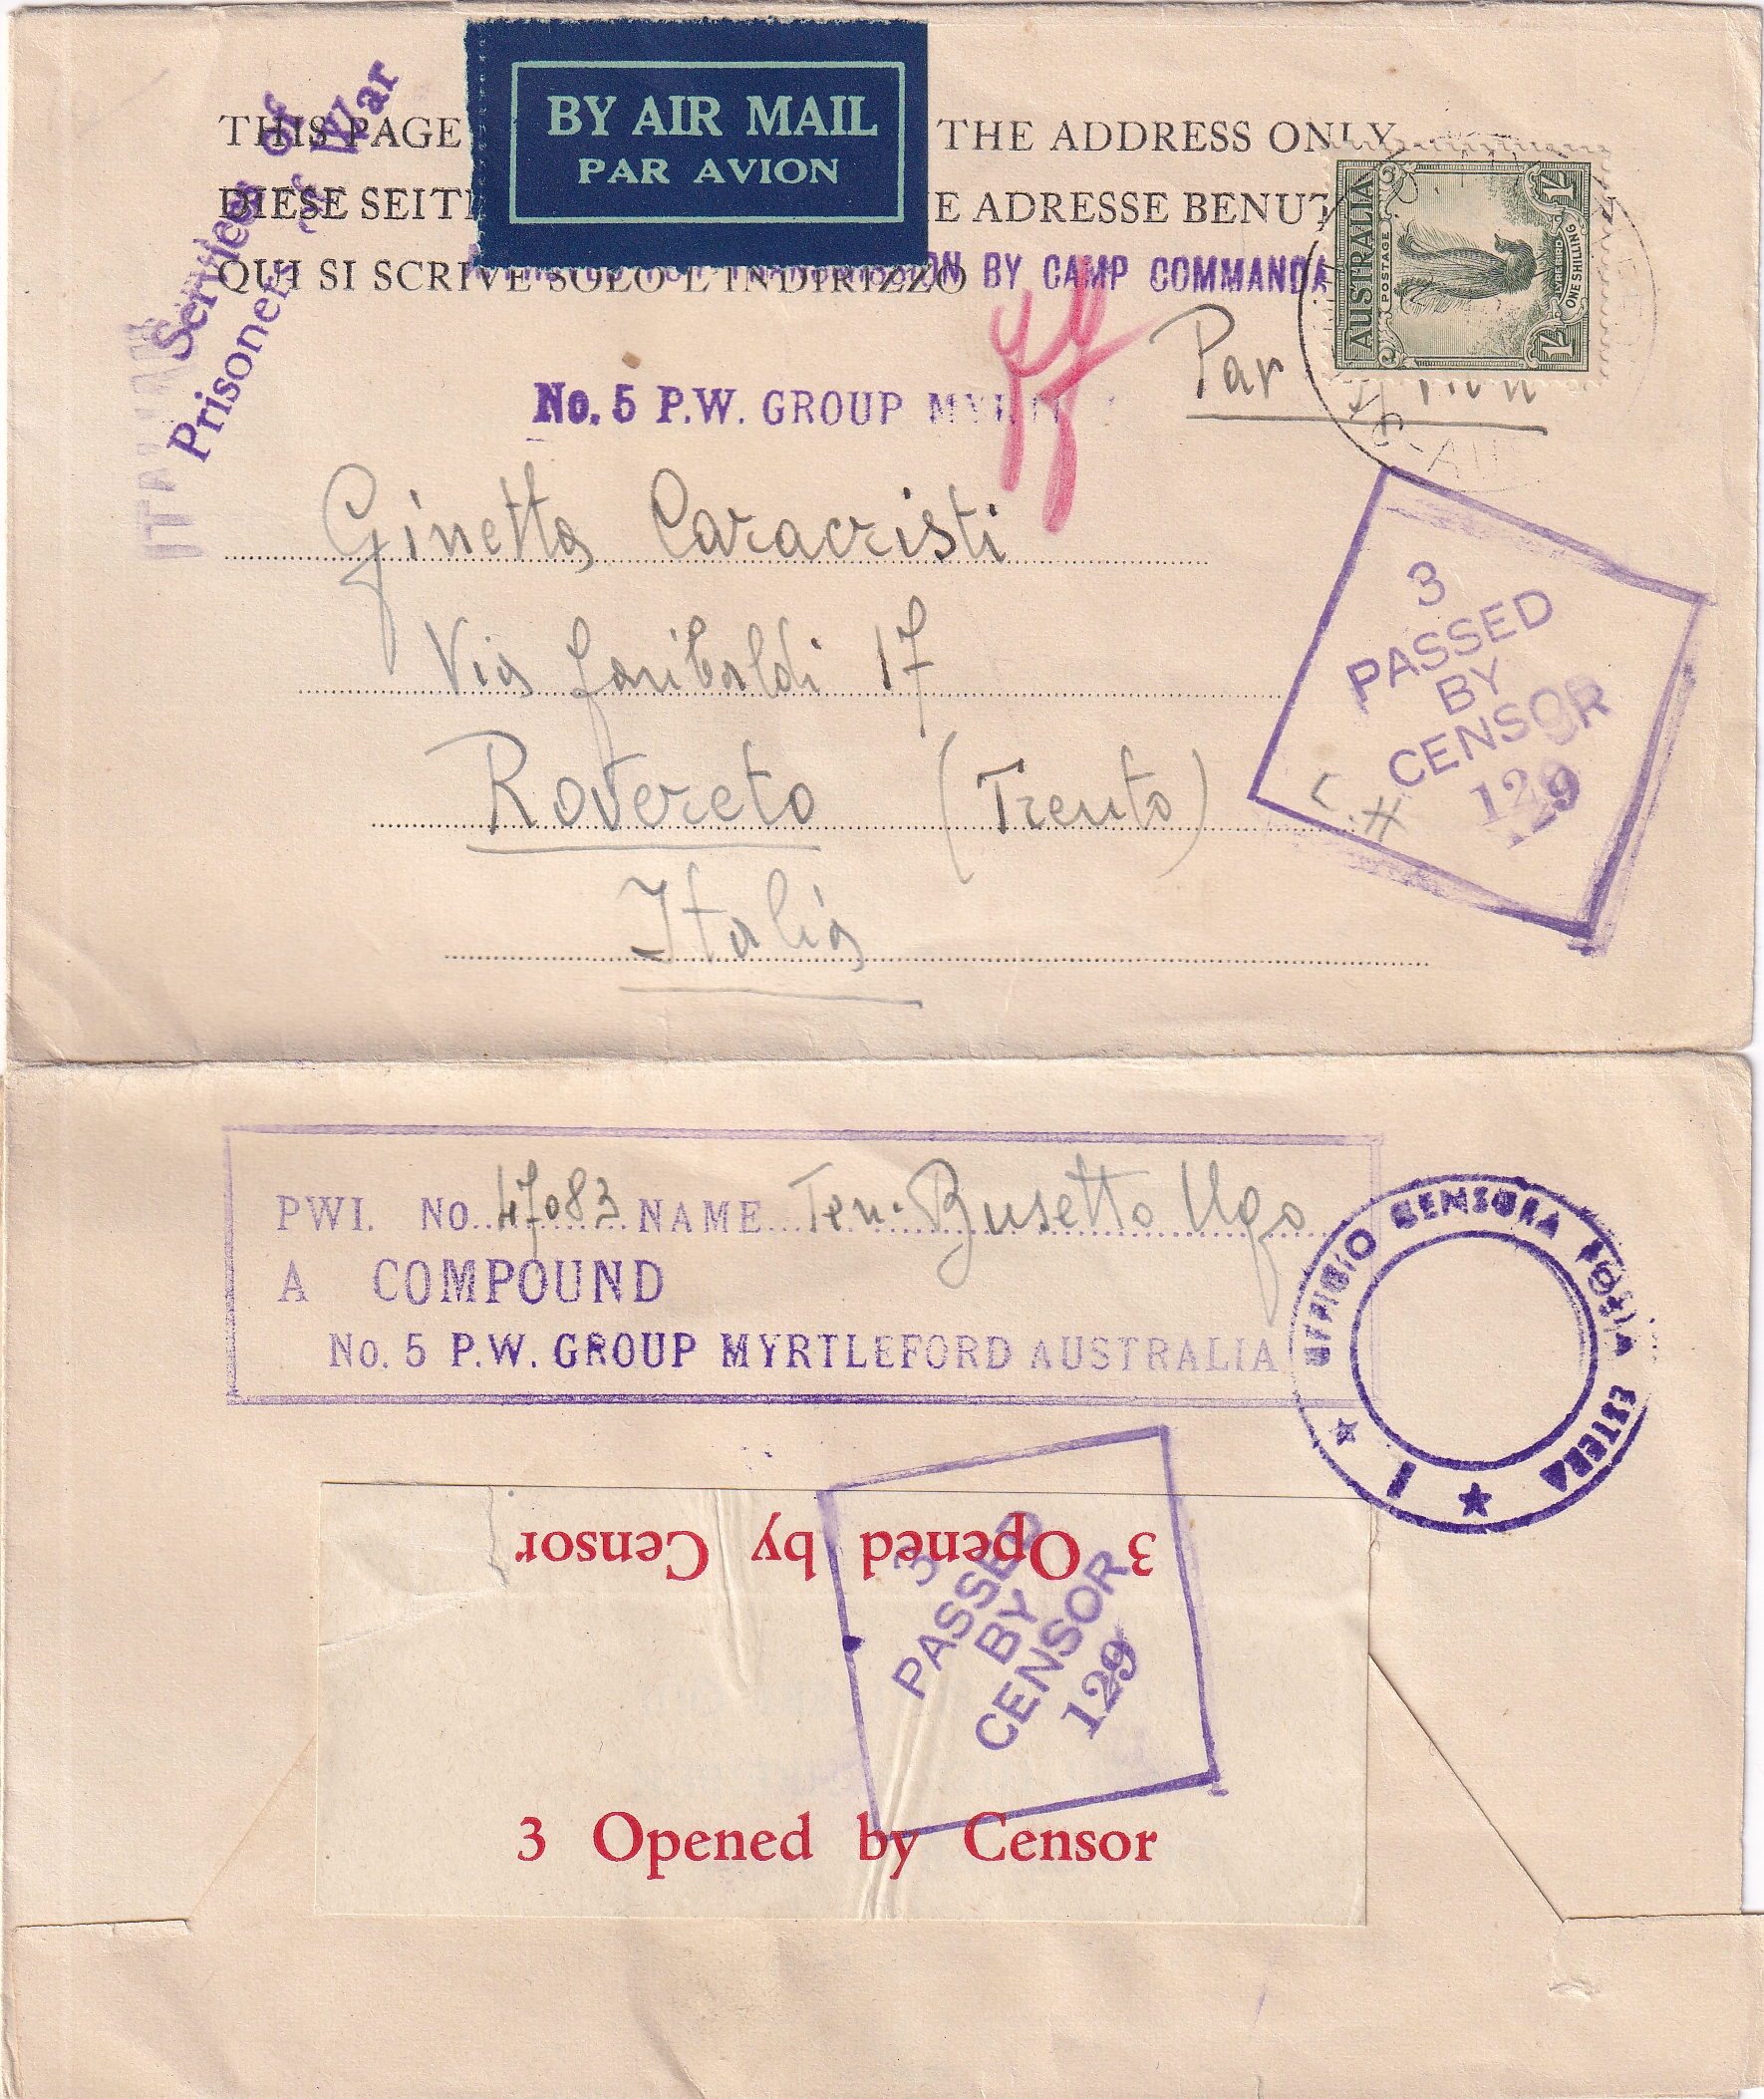 Services of
Prisoner of War
BY AIR MAIL
PAR AVION
THIS PAGE THE ADDRESS ONLY
DIESE SEITE E ADRESSE BENUT
QUI SI SCRIVE SOLO L'INDIRIZZO
BY CAMP COMMANDA
AUSTRALIA
POSTAGE
1/-
LYREBIRD
ONE SHILLING
1/-
Par Avion
No. 5 P.W. GROUP MYRTL
Ginetta Caracristi
Via Garibaldi 17
Rovereto (Trento)
Italia
3
PASSED
BY
CENSOR
129
C.H
PWI. No. 47083 NAME Ten. Busetto Ugo
A COMPOUND
No. 5 P.W. GROUP MYRTLEFORD AUSTRALIA
UFFICIO CENSURA POSTA ESTERA
1
3 Opened by Censor
3
PASSED
BY
CENSOR
129
3 Opened by Censor